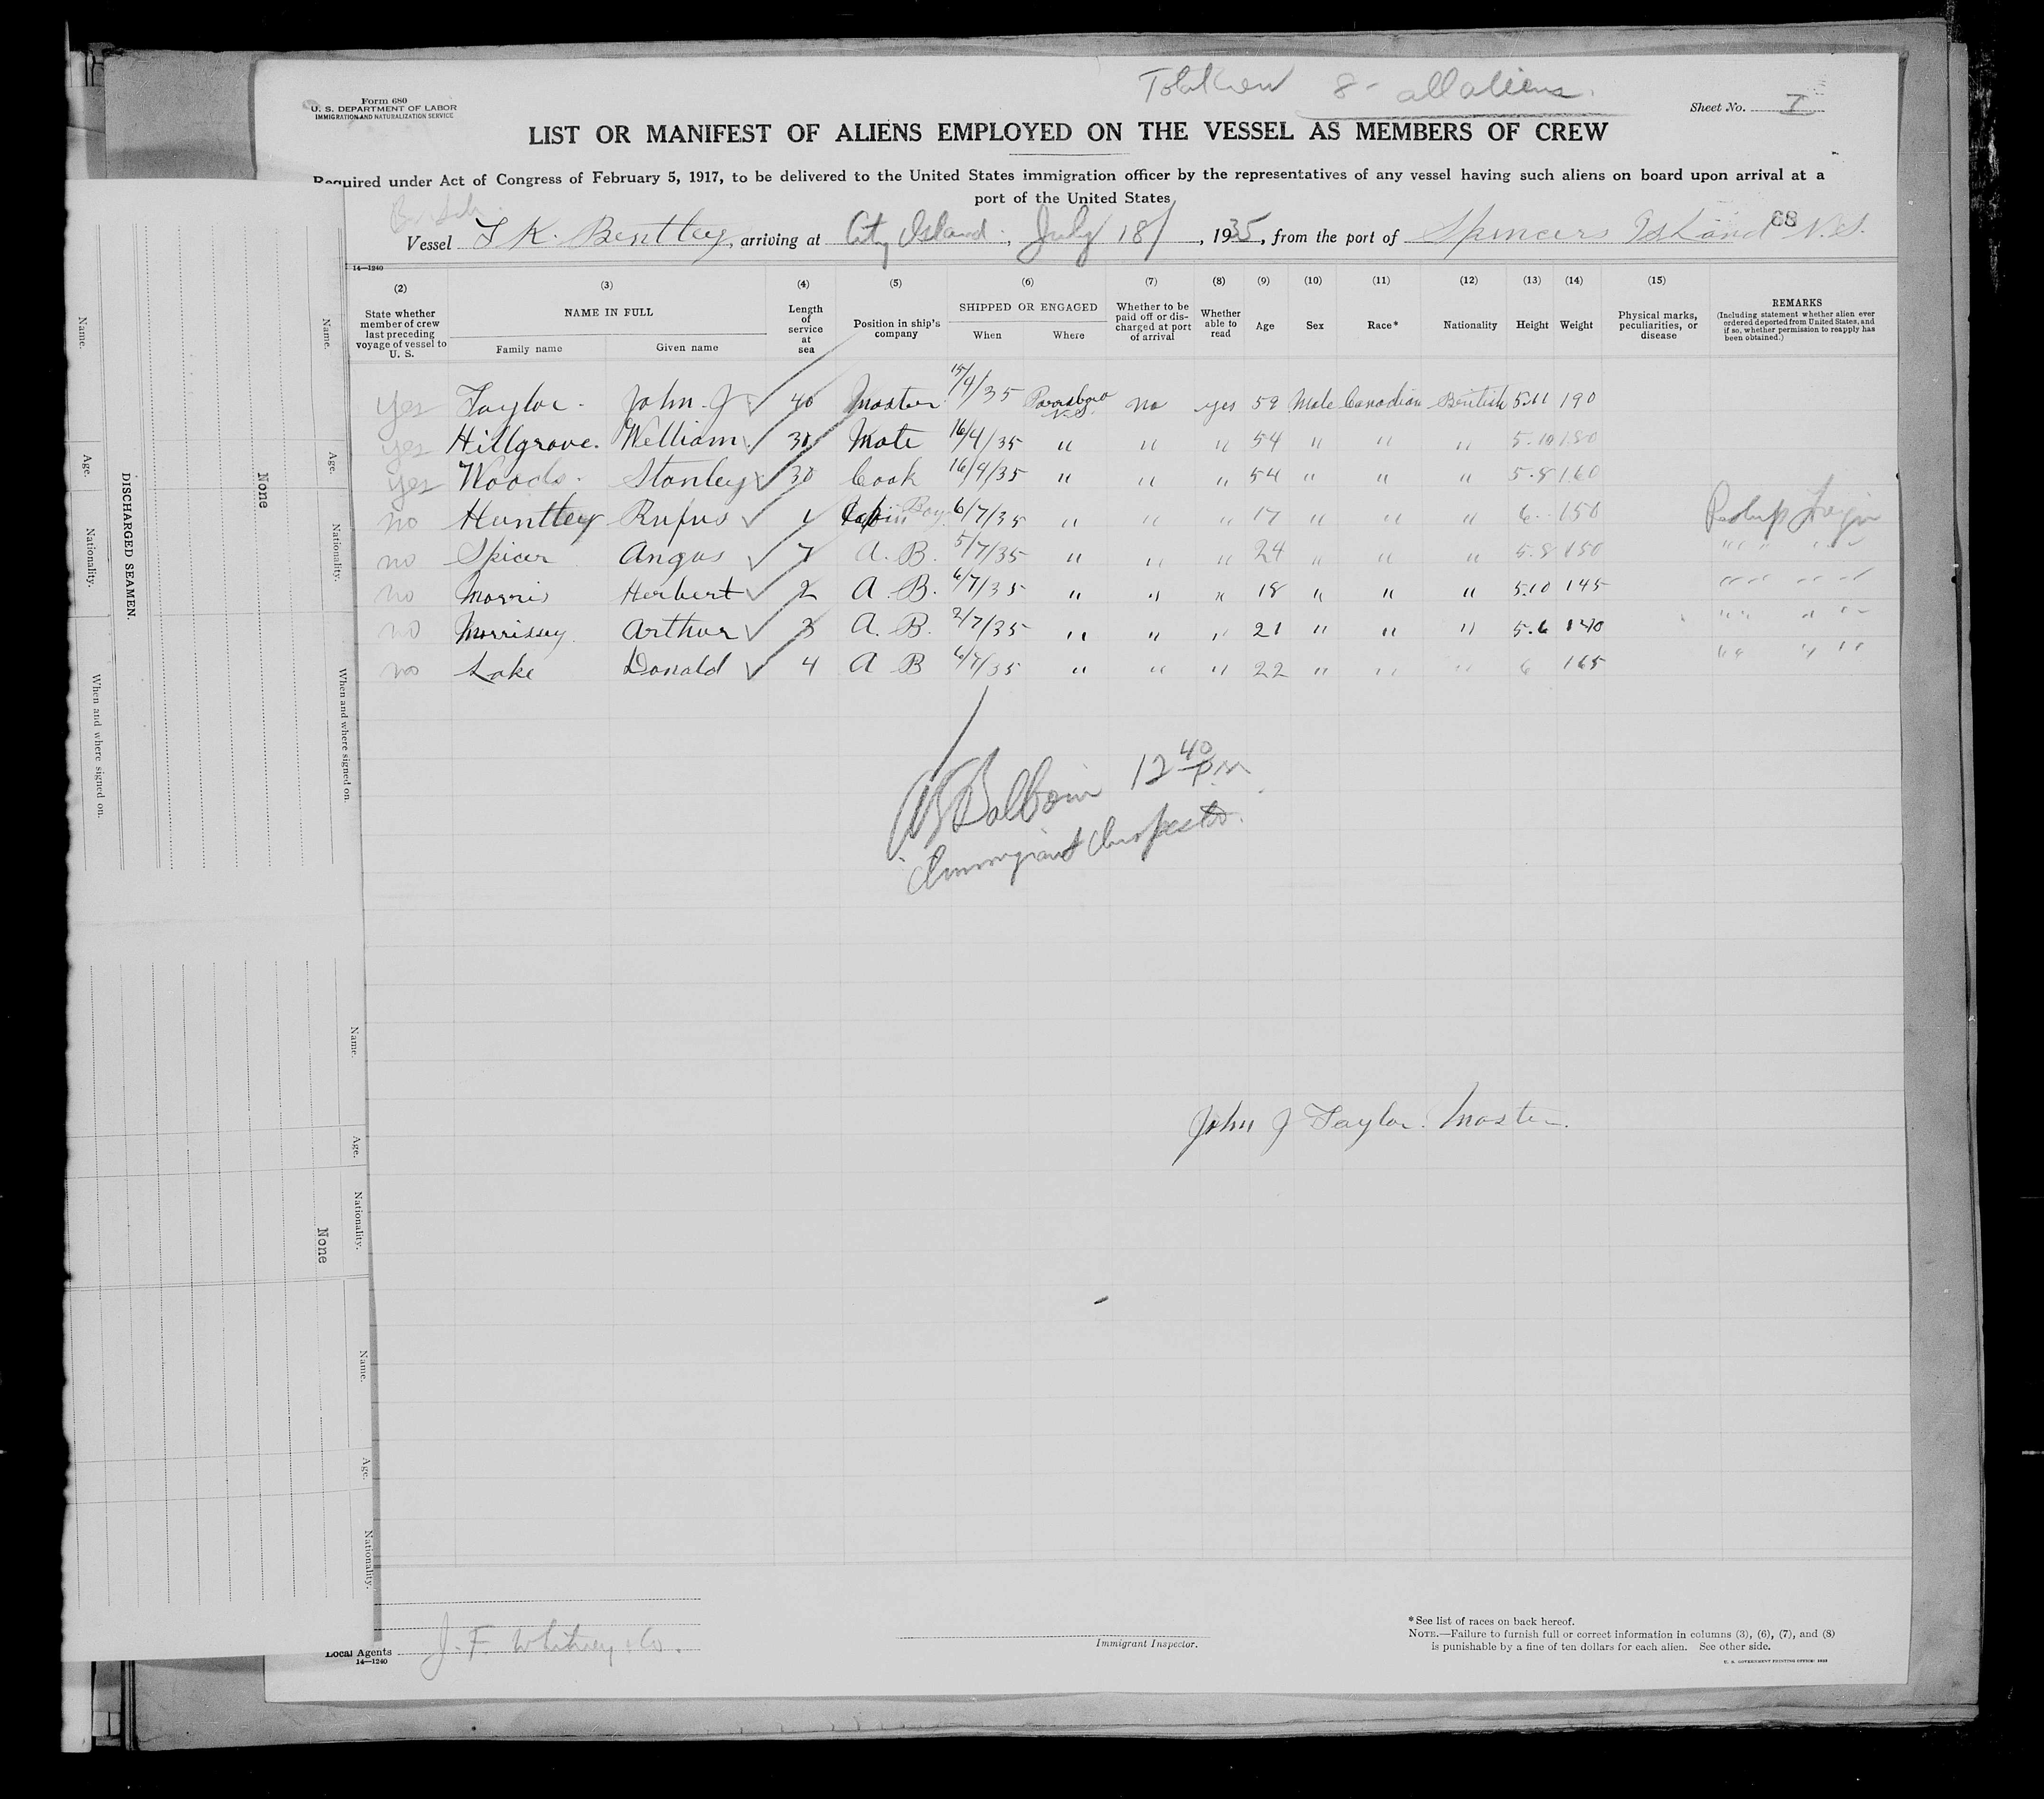 Total Crew 8 - all aliens.
Form 680
U. S. DEPARTMENT OF LABOR
IMMIGRATION AND NATURALIZATION SERVICE
Sheet No. I
LIST OR MANIFEST OF ALIENS EMPLOYED ON THE VESSEL AS MEMBERS OF CREW
Required under Act of Congress of February 5, 1917, to be delivered to the United States immigration officer by the representatives of any vessel having such aliens on board upon arrival at a
port of the United States
Vessel F K. Bentley, arriving at City Island, July 18/, 1935, from the port of Spencers Island N.S.
68
14—1240
(2) (3) (4) (5) (6) (7) (8) (9) (10) (11) (12) (13) (14) (15)
State whether member of crew last preceding voyage of vessel to U. S.
NAME IN FULL
Family name Given name
Length of service at sea
Position in ship's company
SHIPPED OR ENGAGED
When Where
Whether to be paid off or discharged at port of arrival
Whether able to read
Age Sex Race* Nationality Height Weight
Physical marks, peculiarities, or disease
REMARKS
(Including statement whether alien ever ordered deported from United States, and if so, whether permission to reapply has been obtained.)
yes Taylor. John. J 40 Master 15/4/35 Parrsboro N.S. no yes 59 Male Canadian British 5.11 190
yes Hillgrove. William 30 Mate 16/4/35 " " " 54 " " " 5.10 180
yes Woods. Stanley 30 Cook 16/4/35 " " " 54 " " " 5.8 160
no Huntley Rufus 1 Cabin Boy 6/7/35 " " " 17 " " " 6 150
no Spicer Angus 7 A. B. 5/7/35 " " " 24 " " " 5.8 150 " "
no Morris Herbert 2 A. B. 6/7/35 " " " 18 " " " 5.10 145 " "
no Morrissey Arthur 3 A. B. 2/7/35 " " " 21 " " " 5.6 140 " "
no Lake Donald 4 A B 6/7/35 " " " 22 " " " 6 165 " "
12 40 PM
Immigrant Inspector.
John J Taylor. Master.
Local Agents J. F. Whitney & Co.
14—1240
Immigrant Inspector.
*See list of races on back hereof.
NOTE.—Failure to furnish full or correct information in columns (3), (6), (7), and (8)
is punishable by a fine of ten dollars for each alien. See other side.
DISCHARGED SEAMEN.
Name. Age. Nationality. When and where signed on.
None
Name. Age. Nationality. When and where signed on.
Name. Age. Nationality.
None
Name. Age. Nationality.